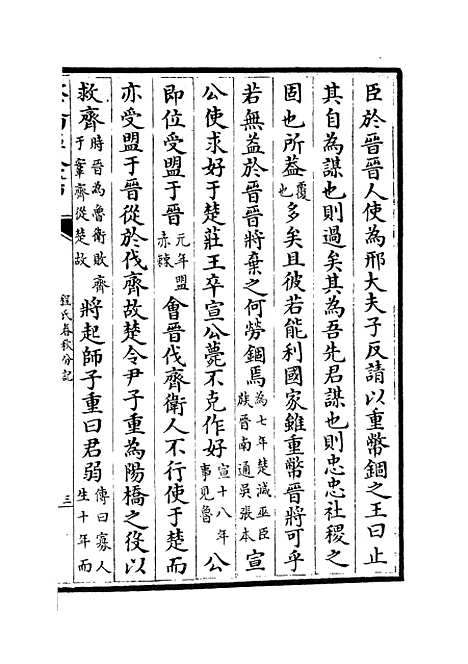 臣於晉晉人使為邢大夫子反請以重幣錮之王曰止
其自為謀也則過矣其為吾先君謀也則忠忠社稷之
固也所葢覆也多矣且彼若能利國家雖重幣晉將可乎
若無益於晉晉將棄之何勞錮焉為七年楚滅巫臣族晉南通吳張本宣
公使求好于楚莊王卒宣公薨不克作好宣十八年事見魯公
即位受盟于晉元年盟赤棘會晉伐齊衛人不行使于楚而
亦受盟于晉從於伐齊故楚令尹子重為陽橋之役以
救齊時晉為魯衛敗齊于鞌齊從楚故將起師子重曰君弱傳曰寡人生十年而
程氏春秋分記
三